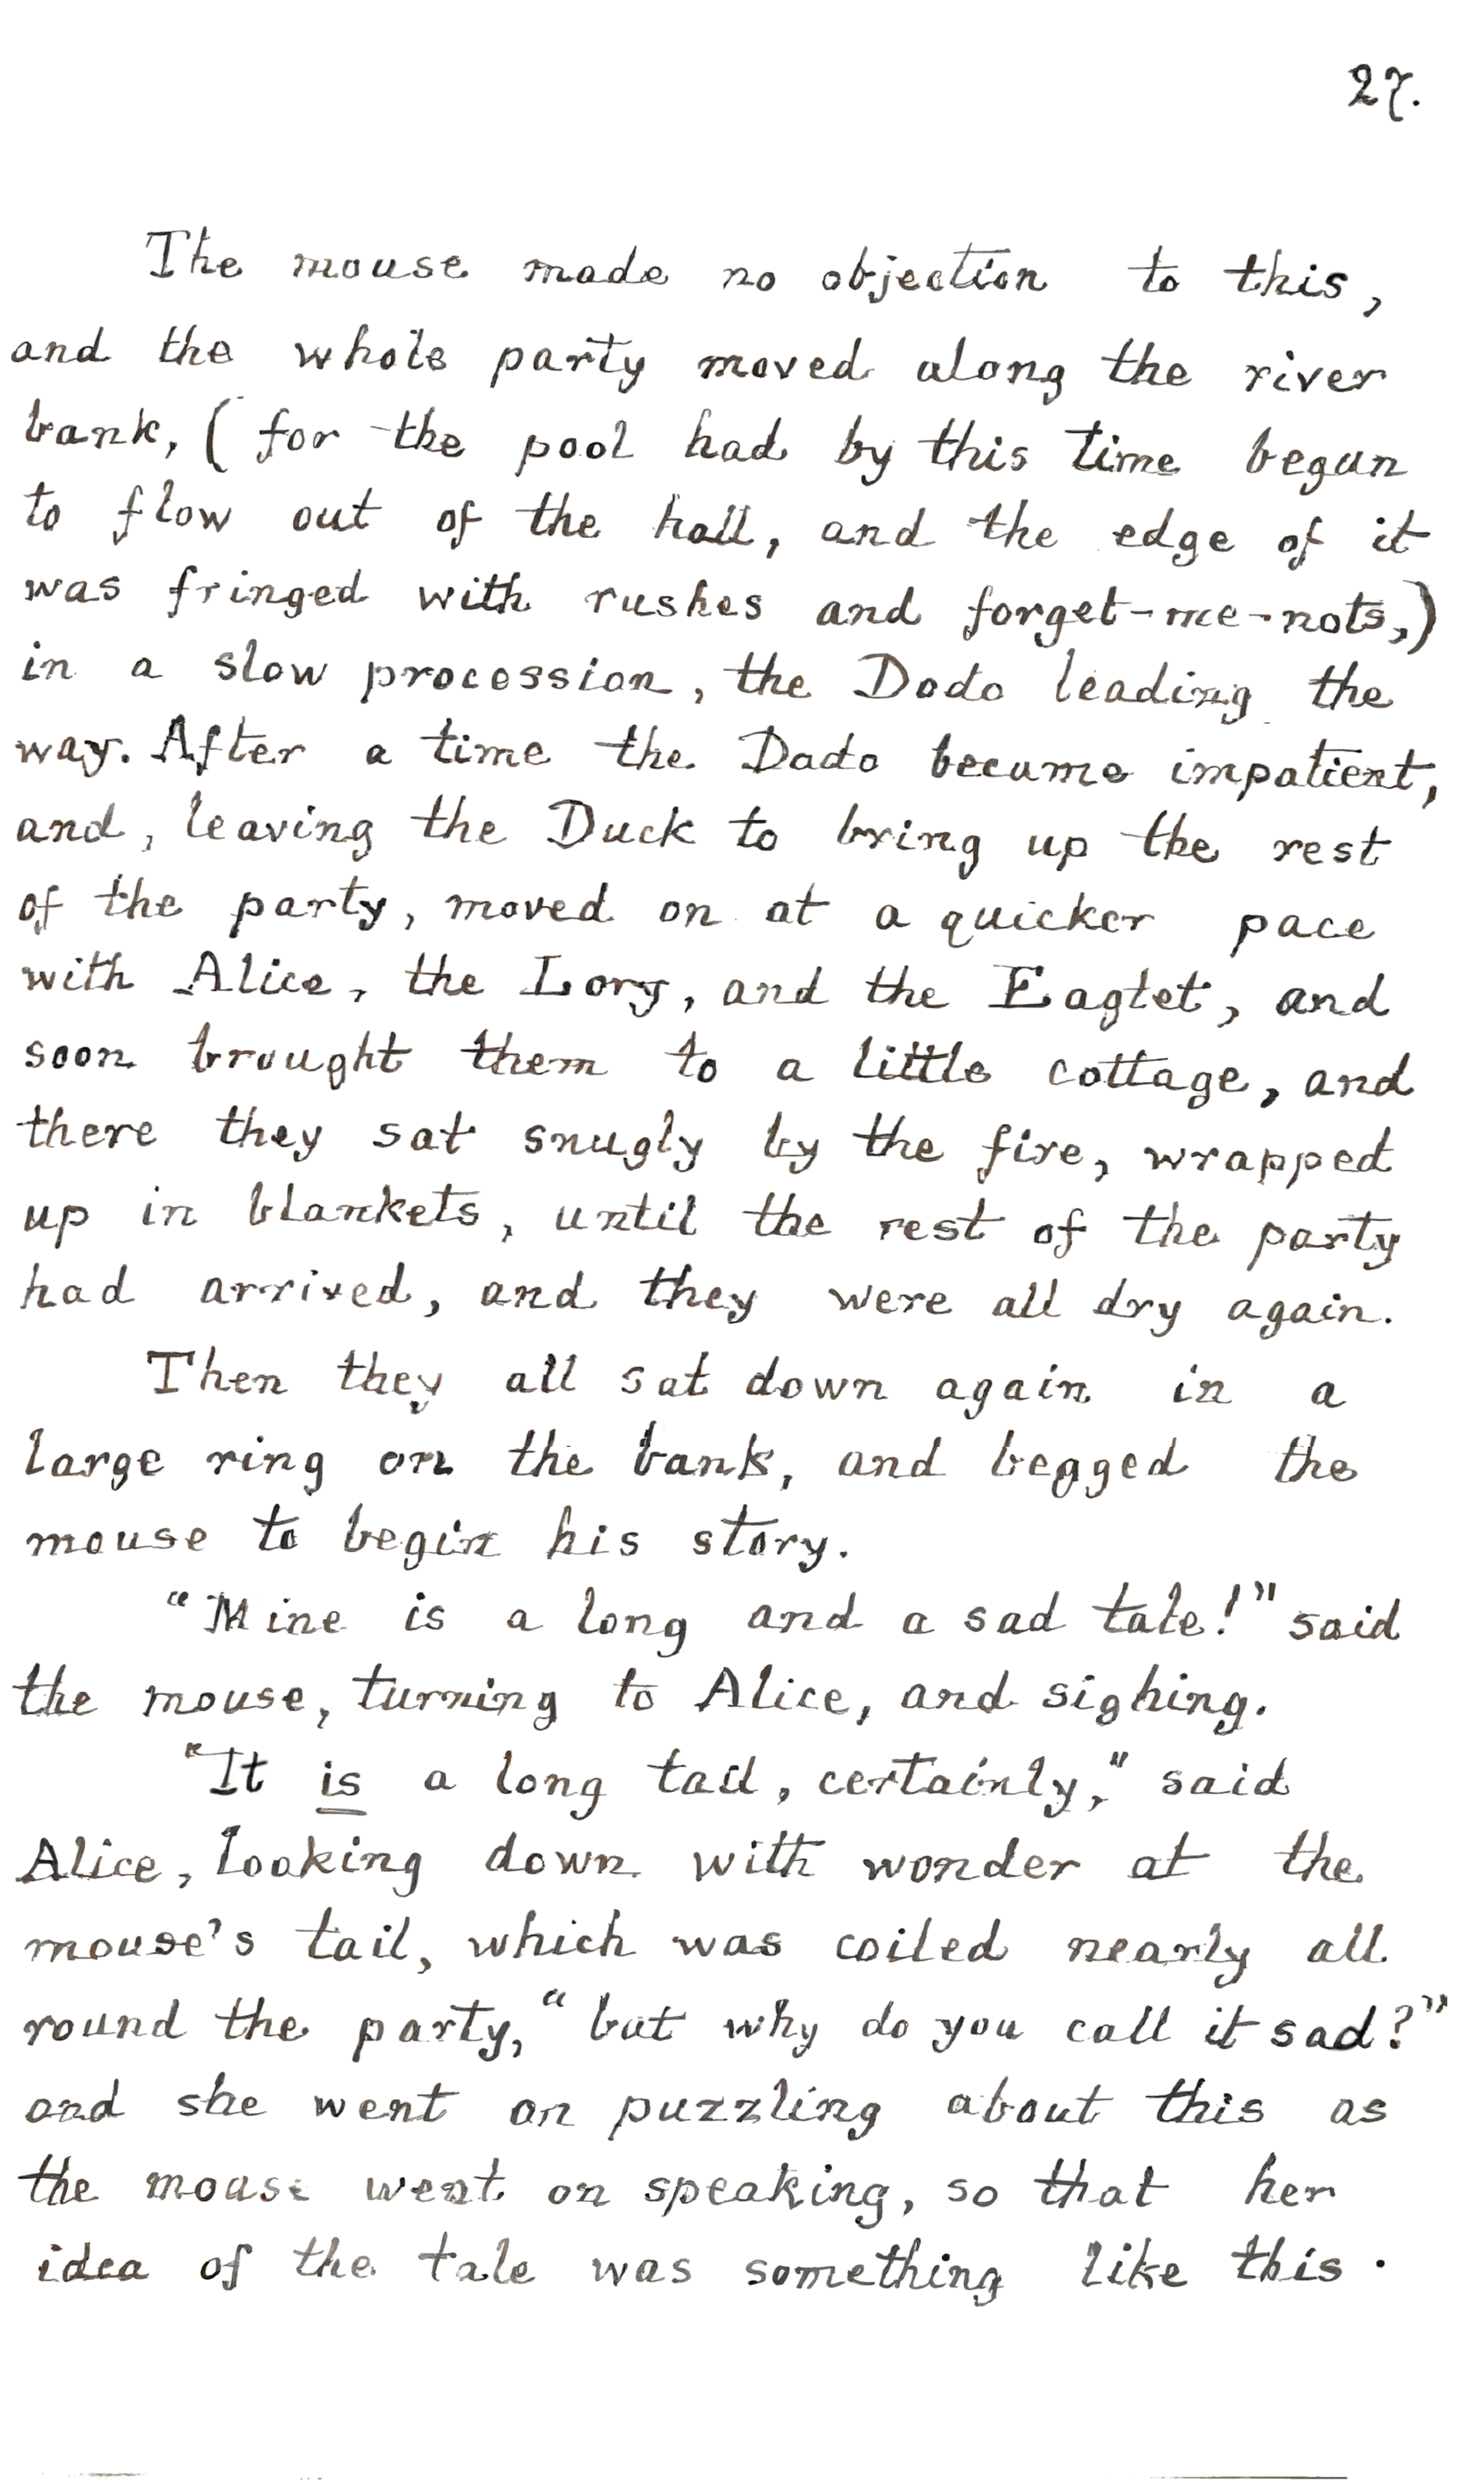 27.
The mouse made no objection to this,
and the whole party moved along the river
bank, (for the pool had by this time begun
to flow out of the hall, and the edge of it
was fringed with rushes and forget-me-nots,)
in a slow procession, the Dodo leading the
way. After a time the Dodo became impatient,
and, leaving the Duck to bring up the rest
of the party, moved on at a quicker pace
with Alice, the Lory, and the Eaglet, and
soon brought them to a little cottage, and
there they sat snugly by the fire, wrapped
up in blankets, until the rest of the party
had arrived, and they were all dry again.
Then they all sat down again in a
large ring on the bank, and begged the
mouse to begin his story.
"Mine is a long and a sad tale!" said
the mouse, turning to Alice, and sighing.
"It is a long tail, certainly," said
Alice, looking down with wonder at the
mouse's tail, which was coiled nearly all
round the party, "but why do you call it sad?"
and she went on puzzling about this as
the mouse went on speaking, so that her
idea of the tale was something like this.